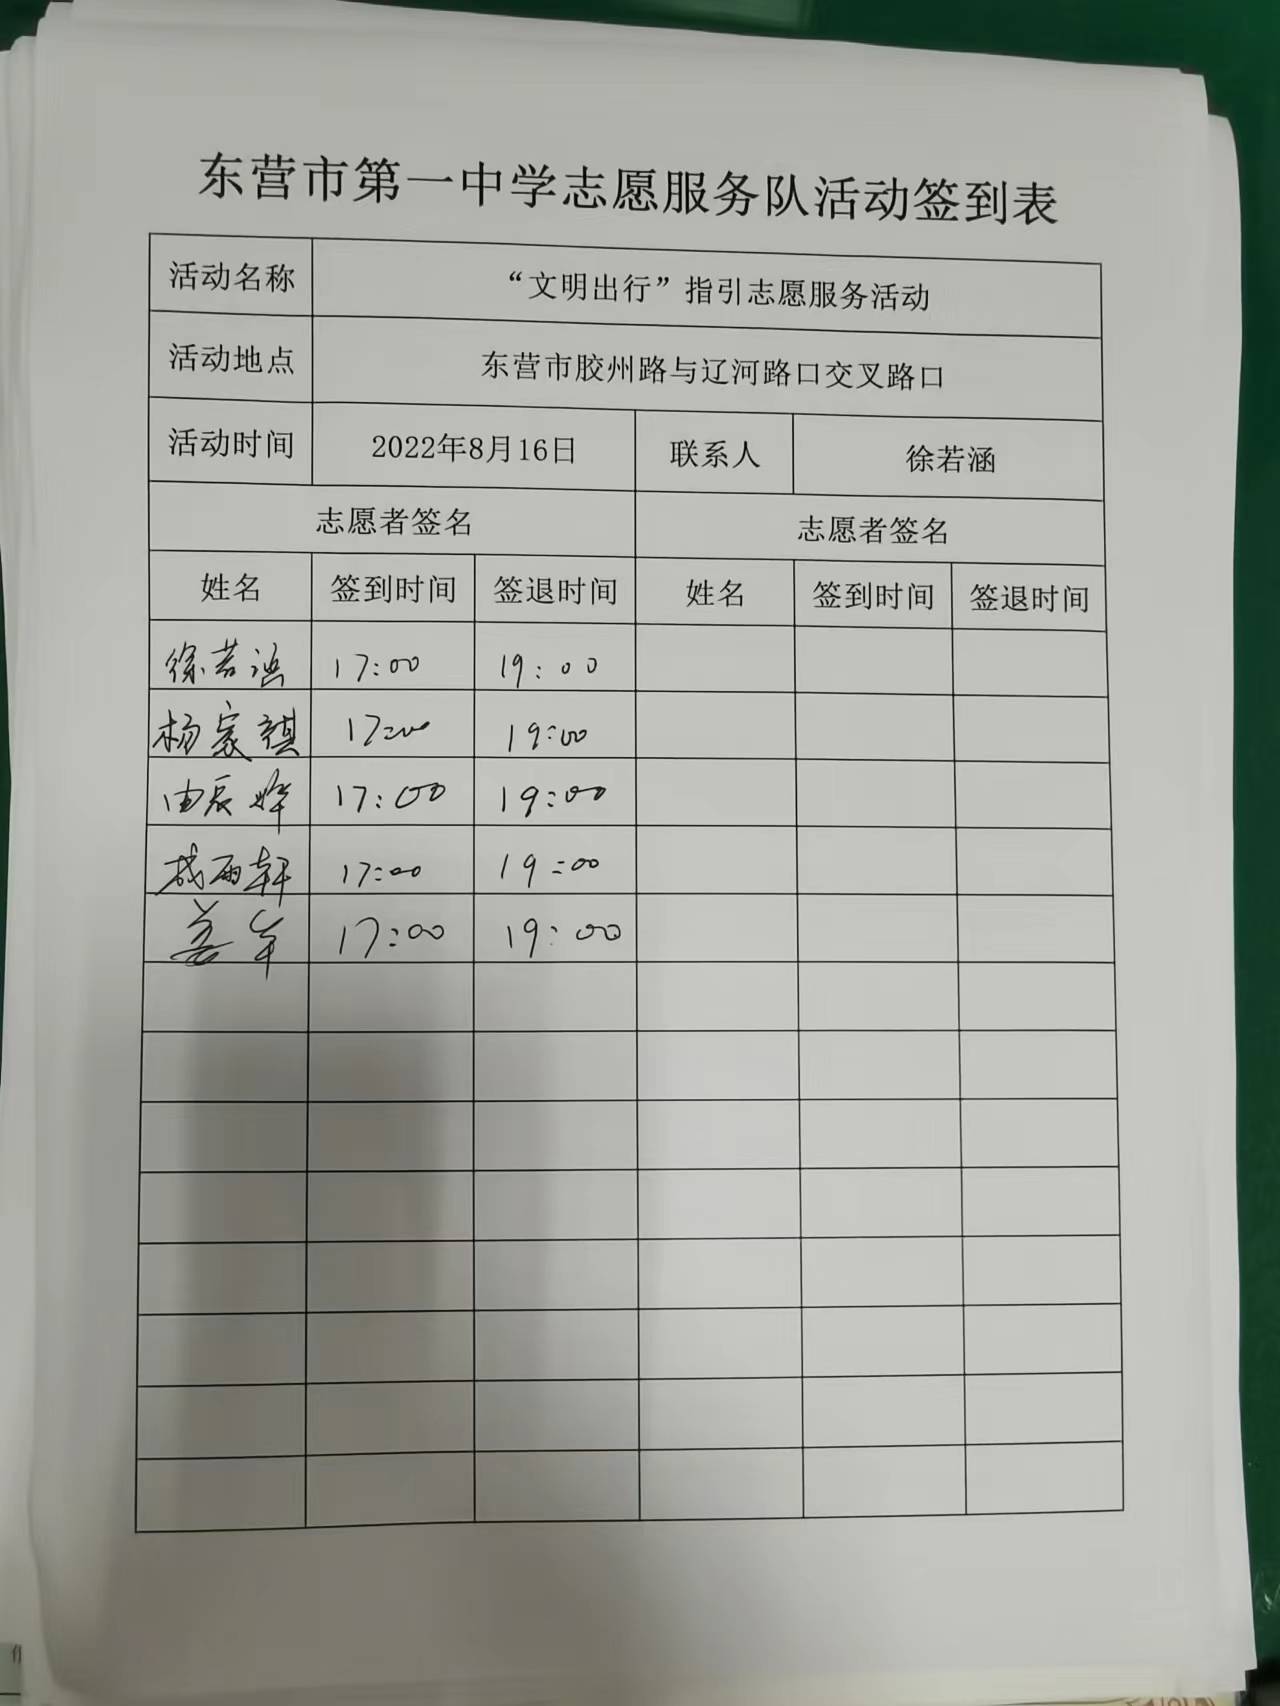 东营市第一中学志愿服务队活动签到表
活动名称 “文明出行”指引志愿服务活动
活动地点 东营市胶州路与辽河路口交叉路口
活动时间 2022年8月16日 联系人 徐若涵
志愿者签名 志愿者签名
姓名 签到时间 签退时间 姓名 签到时间 签退时间
徐若涵 17:00 19:00
杨家祺 17:00 19:00
由辰烨 17:00 19:00
雨轩 17:00 19:00
姜 17:00 19:00